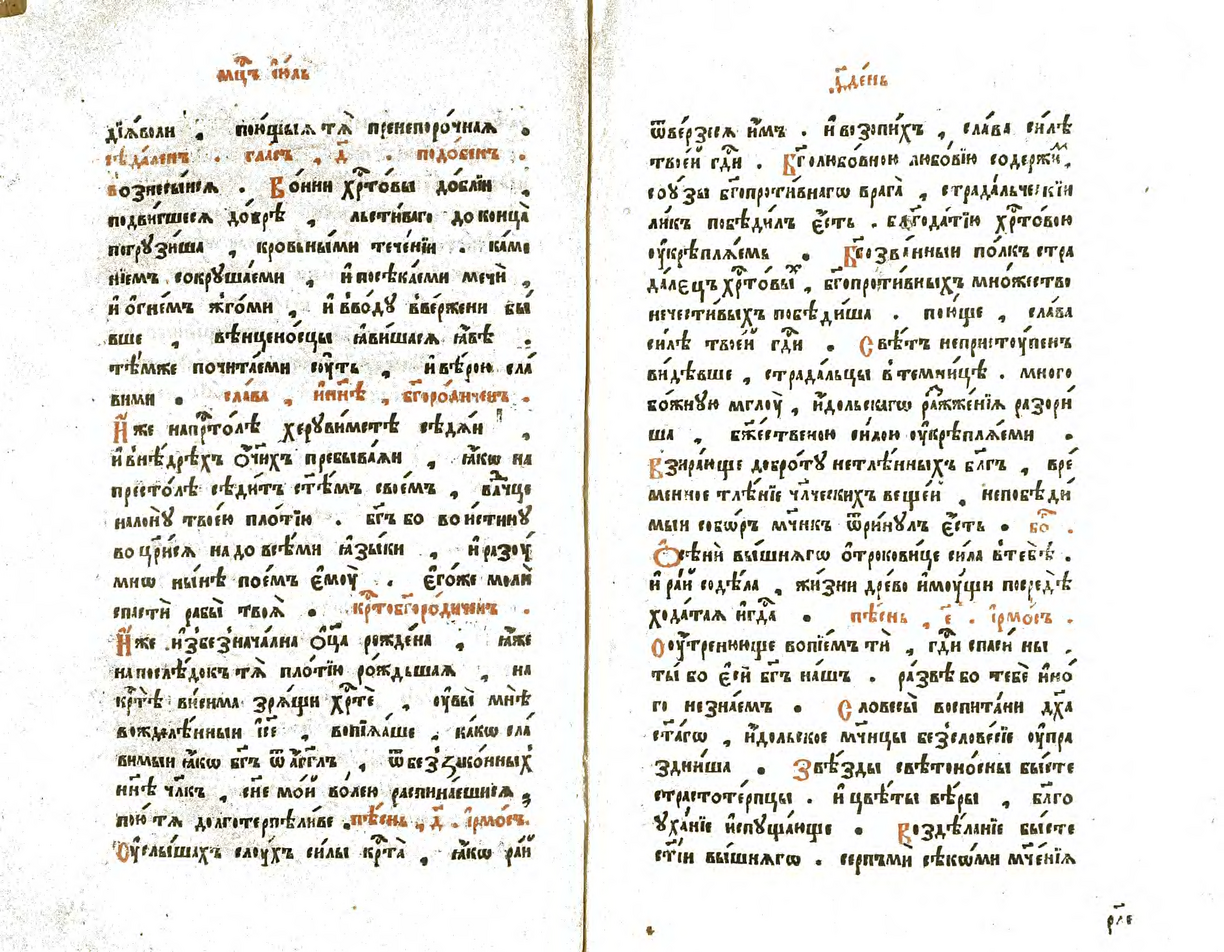 мц҃ъ ею́ль
дїѧ́воли , пою́щыѧ тѧ̀ пренепоро́чнаѧ .
сѣда́ленъ . гла́съ , д҃ . подо́бенъ .
вознесы́исѧ . Во́ини хр҇то́вы до́блїи ,
подви́гшесѧ до́брѣ , льсти́ваго до конца̀
погрузи́ша , кро́вьными тече́нїи . ка́ме
нїемъ сокруша́еми , и҆ посѣка́еми мечи̑ ,
и҆ о҆гне́мъ жго́ми , и҆ в во́дꙋ вве́ржени бы́
вше , вѣнцено́сцы ꙗ҆ви́шасѧ ꙗ҆́вѣ .
тѣ́мже почита́еми сꙋ́ть , и҆ вѣ́рою сла́
вими . сла́ва , и҆ нн҃ѣ , бг҃оро́диченъ .
И҆́же на прⷭ҇то́лѣ херꙋви́мстѣ сѣдѧ́и ,
и҆ в нѣ́дрѣхъ ѻ҆́ч҃ихъ пребыва́ѧи , ꙗ҆́кѡ на
престо́лѣ сѣди́тъ ст҃ѣ́мъ свое́мъ , влⷣчце
на ло́нꙋ твое́ю пло́тїю . бг҃ъ бо во и́стинꙋ
воцр҃и́сѧ надо всѣ́ми ꙗ҆зы́ки , и҆ разꙋ́
мнѡ ны́нѣ пое́мъ є҆мꙋ̀ . є҆го́же молѝ
спастѝ рабы̀ твоѧ̑ . крⷭ҇тобг҃оро́диченъ .
И҆́же и҆з безнача́лна ѻ҆ц҃а̀ рожде́на , ꙗ҆́же
на послѣ́докъ тѧ̀ пло́тїю ро́ждьшаѧ , на
крⷭ҇тѣ̀ ви́сима зрѧ́щи хрⷭ҇тѐ , ᲂу҆вы̀ мнѣ̀
вожделѣ́нныи і҆с҃е , вопїѧ́ше , ка́кѡ сла́
вимыи ꙗ҆́кѡ бг҃ъ ѿ а҆́гг҃лъ , ѿ беззако́нныхъ
нн҃ѣ чл҃къ , сн҃е мо́и во́лею распина́ешисѧ ,
пою́ тѧ долготерпѣли́ве . пѣ́снь , д҃ . і҆рмо́съ .
Оу҆слы́шахъ слꙋ́хъ си́лы крⷭ҇та̀ , ꙗ҆́кѡ ра́и
д҃ де́нь
ѿве́рзесѧ и҆́мъ . и҆ возопи́хъ , сла́ва си́лѣ
твое́й гдⷭ҇и . Бг҃олюбо́вною любо́вїю содержи́мъ ,
соꙋ́зы бг҃опроти́внагѡ врага̀ , страда́льческїи
ли́къ побѣди́лъ є҆́сть . благода́тїю хрⷭ҇то́вою
ᲂу҆крѣплѧ́емь . Бг҃озва́нныи по́лкъ стра
да́лецъ хрⷭ҇то́выхъ , бг҃опроти́вныхъ мно́жество
нечести́выхъ побѣди́ша . пою́ще , сла́ва
си́лѣ твое́й гдⷭ҇и . Свѣ́тъ непристꙋ́пенъ
ви́дѣвше , страда́льцы в темни́цѣ . много
бо́жнꙋю мглꙋ̀ , и҆́дольскагѡ ражже́нїѧ разори́
ша , бжⷭ҇ественою си́лою ᲂу҆крѣплѧ́еми .
Взира́юще добро́тꙋ нетлѣ́нныхъ бл҃гъ , вре́
менное тлѣ́нїе чл҃ческихъ веще́й , непобѣди́
мыи собо́ръ мч҃никъ ѿри́нꙋлъ є҆́сть . бо҃ .
Ѻ҆сѣни́ вы́шнѧгѡ ѻ҆трокови́це си́ла в тебѣ̀ .
и҆ ра́й содѣ́ла , жи́зни дре́во и҆мꙋ́щи посредѣ̀
хода́таѧ и҆ гдⷭ҇а . пѣ́снь , є҃ . і҆рмо́съ .
Ѻу҆́тренююще вопїе́мъ тѝ , гдⷭ҇и спаси́ ны .
ты́ бо є҆сѝ бг҃ъ на́шъ . ра́звѣ бо тебѐ и҆но́
го не зна́емъ . Словесы̀ воспита́ни дх҃а
ст҃а́гѡ , и҆́дольское мч҃ницы безслове́сїе ᲂу҆пра
здни́ша . Звѣ́зды свѣтоно́сны бы́сте
страстоте́рпцы . и҆ цвѣ́ты вѣ́ры , бл҃го
ᲂуха́нїе и҆спꙋща́юще . Воздѣ́ланїе бы́сте
ст҃їи вы́шнѧгѡ . серпъмѝ сѣко́ми мч҃е́нїѧ
рл҃е